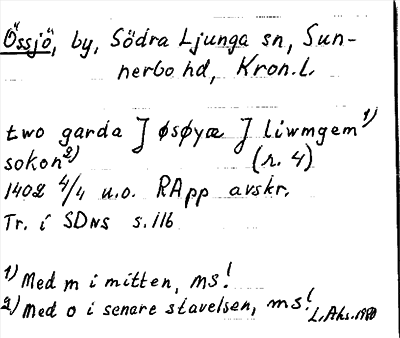 Össjö, by, Södra Ljunga sn, Sun-
nerbo hd, Kron.l.
two garda J øsøyæ J liwmgem 1)
sokon 2) (r. 4)
1402 4/4 u.o. RApp avskr.
Tr. i SDns s. 116
1) Med m i mitten, ms!
2) Med o i senare stavelsen, ms!
L. Ahs. 1980